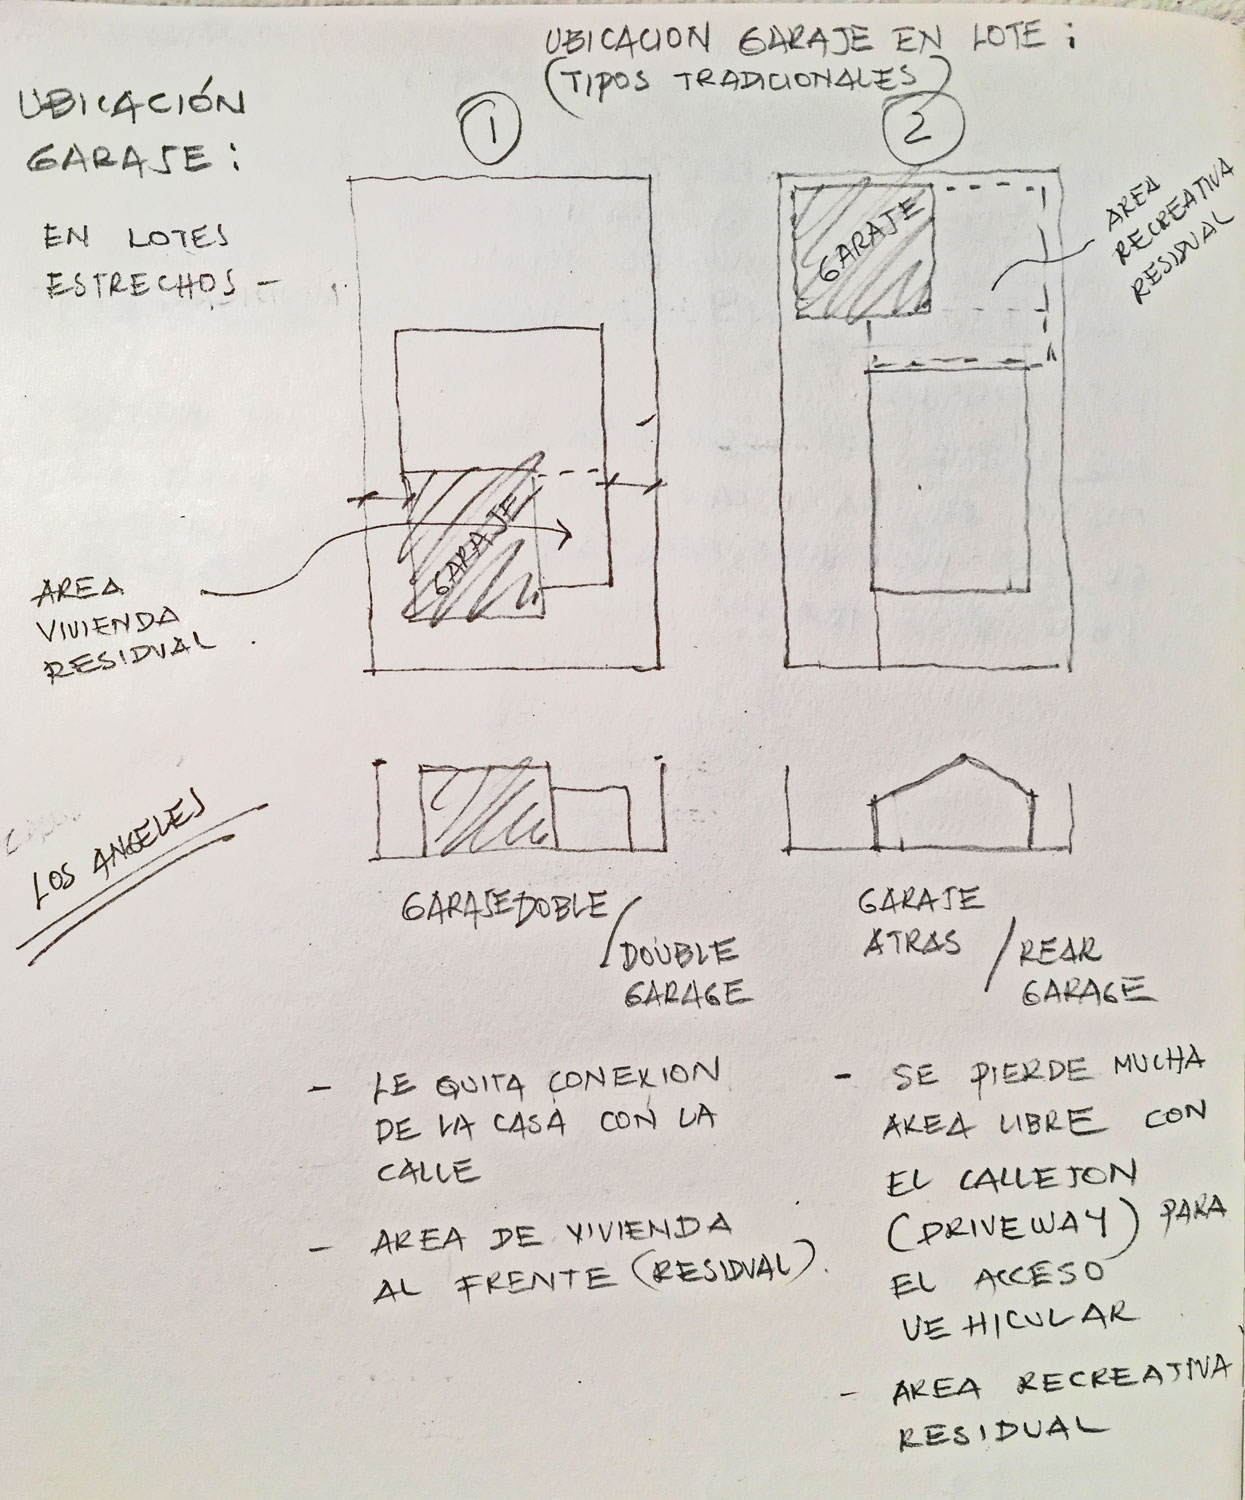 UBICACION GARAJE EN LOTE:
(TIPOS TRADICIONALES)
UBICACIÓN
GARAJE:
EN LOTES
ESTRECHOS -
1
2
GARAJE
AREA
RECREATIVA
RESIDUAL
GARAJE
AREA
VIVIENDA
RESIDUAL.
LOS ANGELES
GARAJE DOBLE /
DOUBLE
GARAGE
GARAJE
ATRAS /
REAR
GARAGE
- LE QUITA CONEXION
DE LA CASA CON LA
CALLE
- AREA DE VIVIENDA
AL FRENTE (RESIDUAL).
- SE PIERDE MUCHA
AREA LIBRE CON
EL CALLEJON
(DRIVEWAY) PARA
EL ACCESO
VEHICULAR
- AREA RECREATIVA
RESIDUAL